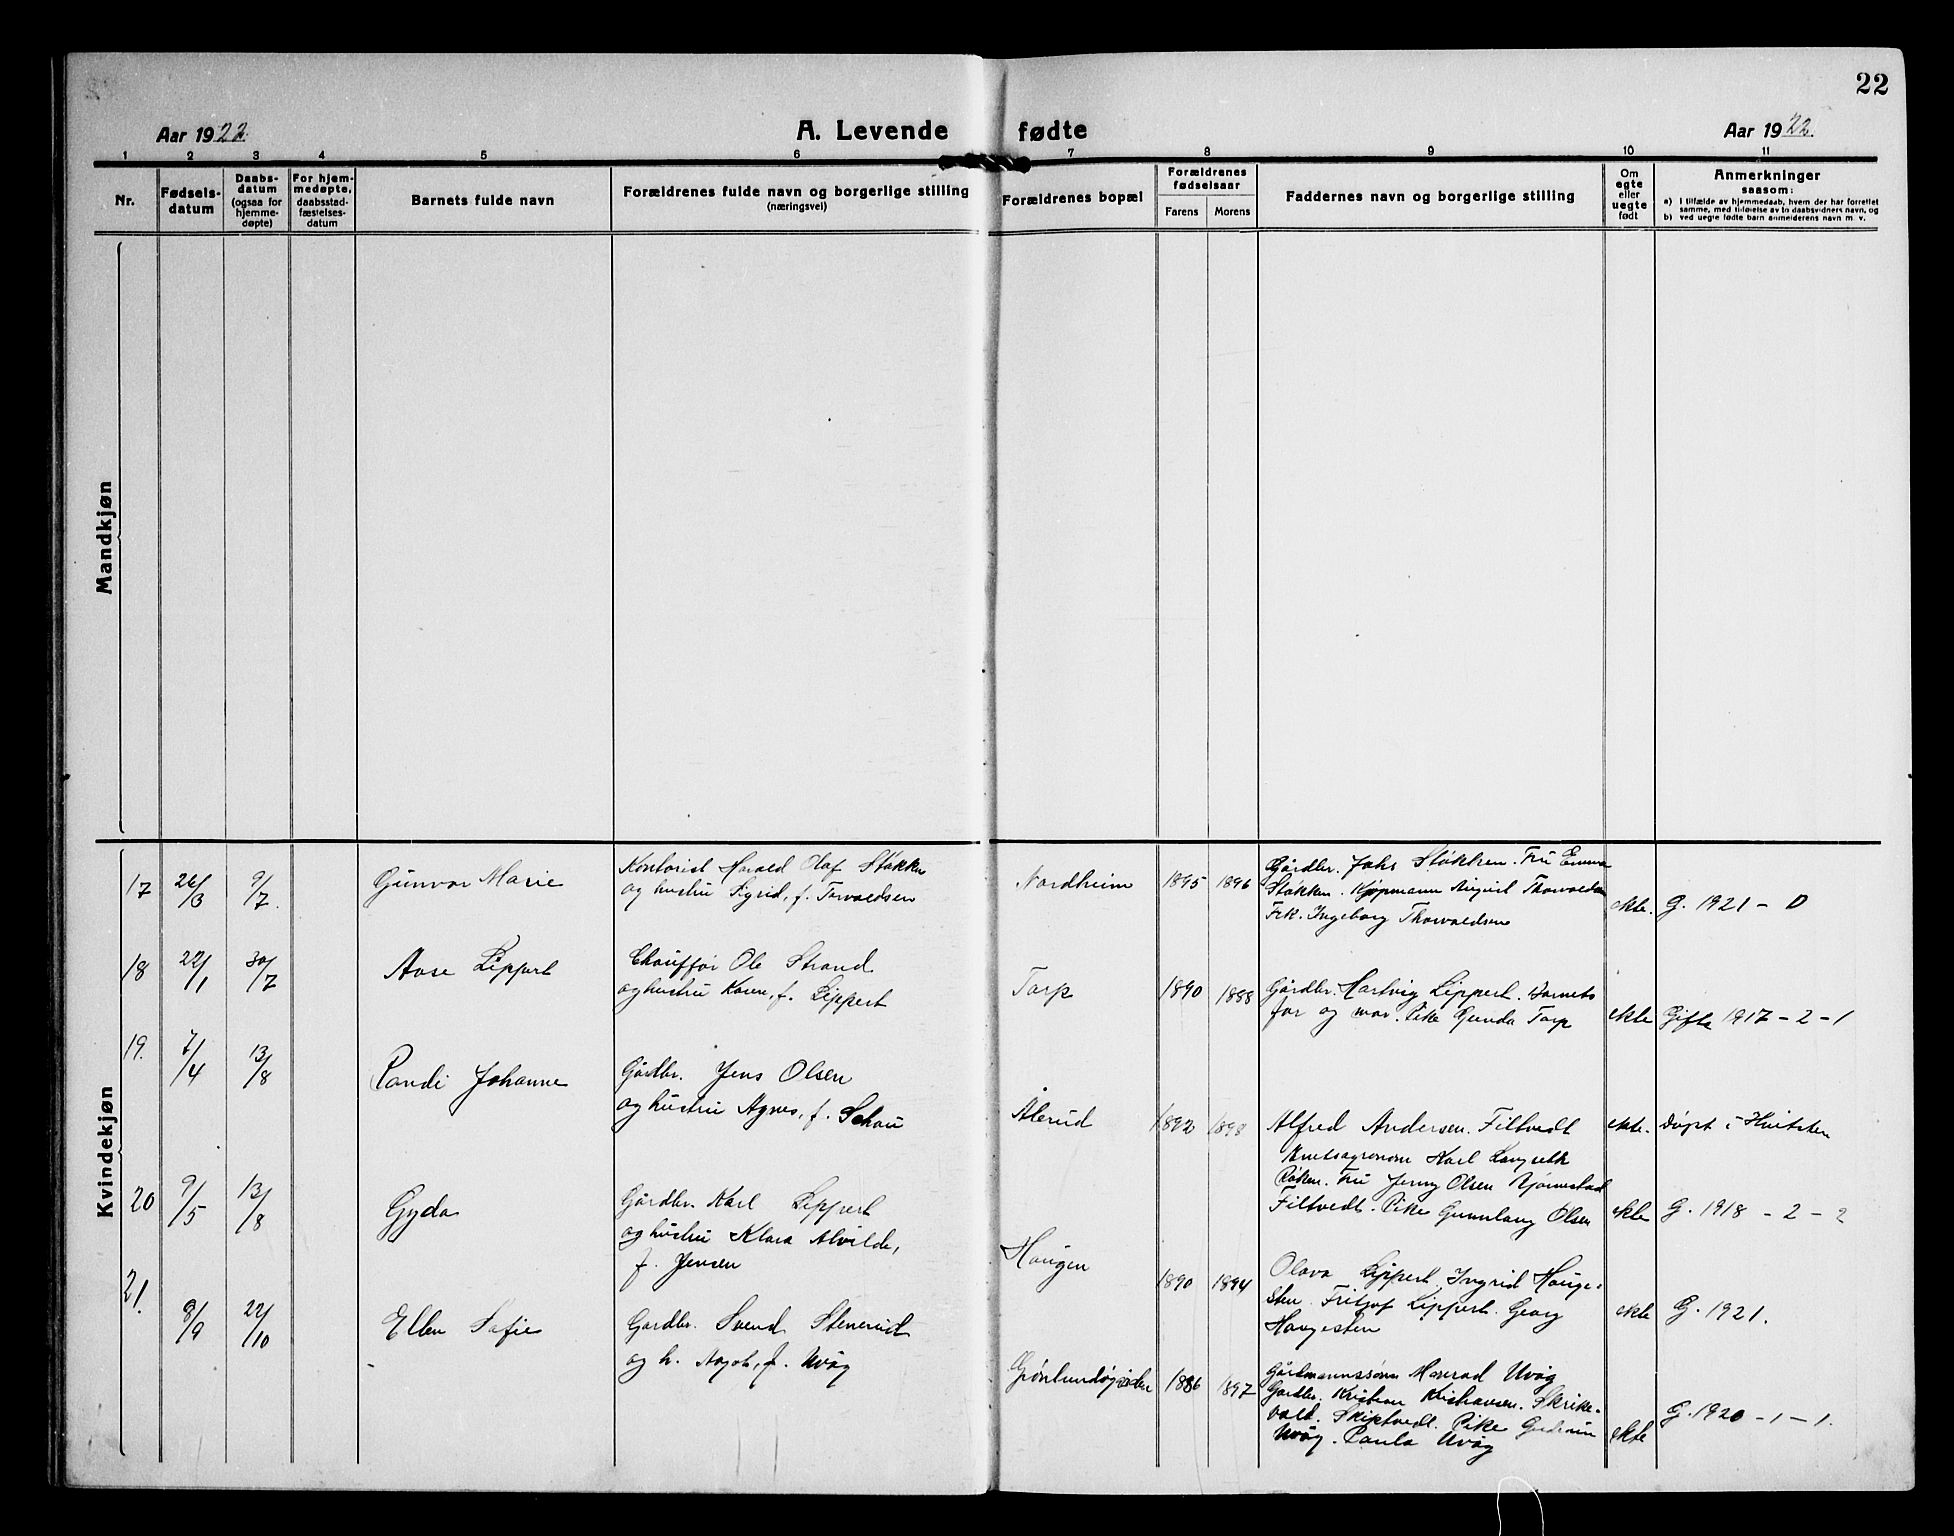 22
Aar 1922.
A. Levende fødte
Aar 1922.
1 2 3 4 5 6 7 8 9 10 11
Nr.
Fødsels-
datum
Daabs-
datum
(ogsaa for
hjemme-
døpte)
For hjem-
medøpte,
daabsstad-
fæstelses-
datum
Barnets fulde navn
Forældrenes fulde navn og borgerlige stilling
(næringsvei)
Forældrenes bopæl
Forældrenes
fødselsaar
Farens Morens
Faddernes navn og borgerlige stilling
Om
egte
eller
uegte
født
Anmerkninger
saasom:
a) I tilfælde av hjemmedaab, hvem der har forrettet
samme, med tilføielse av to daabsvidners navn, og
b) ved uegte fødte barn anmelderens navn m. v.
Mandkjøn
Kvindekjøn
17 26/3 9/7. Gunvor Marie
Kontorist Harald Olaf Støkken
og hustru Sigrid, f. Torvaldsen
Nordheim 1895 1896
Gårdbr. Johs Støkken. Fru Emma
Støkken. Kjøpmann August Thorvaldsen
Frk. Ingeborg Thorvaldsen
ekte. G. 1921 - 0
18 22/1 30/7 Aase Lippert
Chauffør Ole Strand
og hustru Karen, f. Lippert
Torp 1890 1888
Gårdbr. Hartvig Lippert. Barnets
far og mor. Pike Gunda Torp
ekte Gifte 1917 - 2 - 1
19. 7/4 13/8 Randi Johanne
Gårdbr. Jens Olsen
og hustru Agnes, f. Schou
Ålerud 1892 1898
Alfred Andersen. Filtvedt
Karl Langseth
Røken. Fru Jenny Olsen
Filtvedt. Pike Gunnlaug Olsen
ekte. Døpt i Hvitsten
20 9/5 13/8 Gyda
Gårdbr. Karl Lippert
og hustru Klara Alvilde,
f. Jensen
ekte G. 1918 - 2 - 2
Haugen 1890 1894
Olava Lippert. Ingrid Hauge-
sten. Fritjof Lippert. Georg
Haugesten
ekte G. 1921.
21. 8/9 22/10 Ellen Sofie
Gardbr. Svend Stenerud
og h. f. Uvåg
1886 1897
Gårdmannssønn Uvåg
Gardbr. Kristian Kristiansen. Skrike-
vold. Skiptvedt. Pike Gudrun
Uvåg. Paula Uvåg
ekte G. 1920 - 1 - 1.